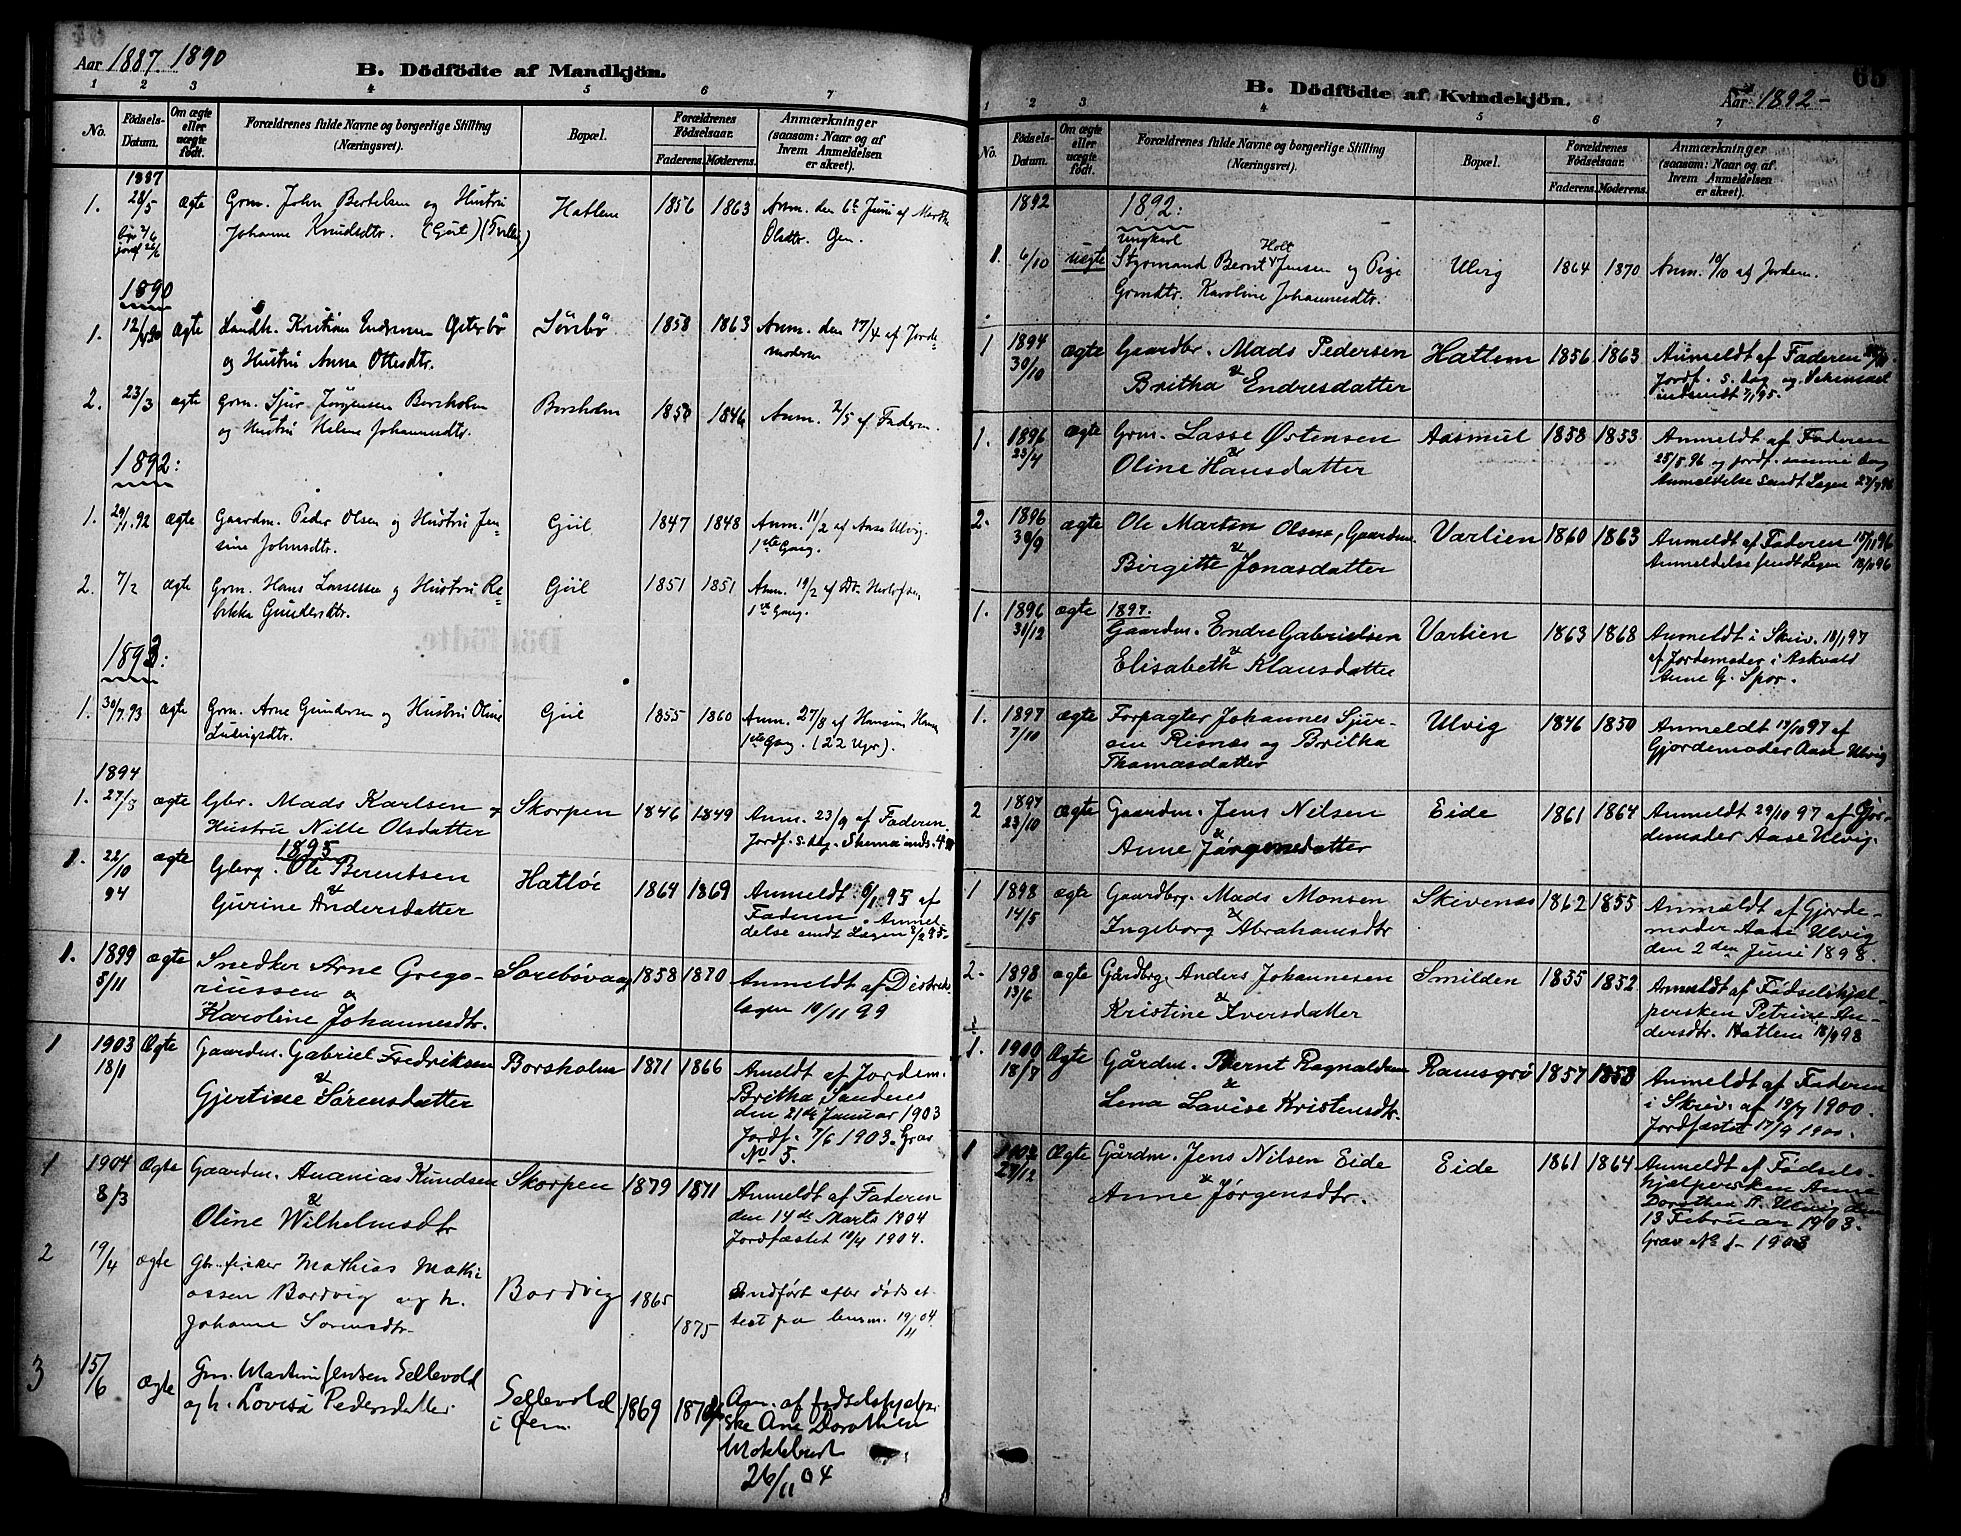 Aar 1887. 1890
B. Dödfödte af Mandkjön.
1 2 3 4 5 6 7
No. Födsels-Datum. Om ægte eller uægte födt. Forældrenes fulde Navne og borgerlige Stilling (Næringsvei). Bopæl. Forældrenes Födselsaar. Faderens. Moderens. Anmærkninger (saasom: Naar og af hvem Anmeldelsen er skeet).
1887
1. 28/5 ægte Grm. John Bertelsen og Hustru Hatlem 1856 1863 Anm. den 6te Juni af Marthe
Johanne Knudsdtr. Olsdtr. Øen.
1890
1. 12/4 90 ægte Kristian Endresen Østerbø Sörebø 1858 1863 Anm. den 17/4 af Jorde-
og Hustru Anna Ottesdtr. moderen
2. 23/3 ægte Grm. Sjur Jørgensen Borsholm Borsholm 1850 1846 Anm. 2/5 af Faderen.
og Hustru Helene Johannesdtr.
1892:
1. 29/1.92 ægte Gaardm. Peder Olsen og Hustru Jen- Gjül 1847 1848 Anm. 11/2 af Aase Ulvig.
sine Johnsdtr. 1ste Gang.
2. 7/2 ægte Grm. Hans Lassesen og Hustru Re- Gjül 1851 1851 Anm. 19/2 af
bekka Gundersdtr. 1ste Gang.
1893:
1. 30/7.93 ægte Grm. Arne Gundersen og Hustru Oline Gjül 1855 1860 Anm. 27/8 af
Ludvigsdtr. 1ste Gang. (22 Uger).
1894
1. 27/8 ægte Gbr. Mads Karlsen og Skorpen 1846 1849 Anm. 23/9 af Faderen.
Hustru Nille Olsdatter Jordf. s. dag. Skema inds.
1895
1. 22/10 94 ægte Gbrg. Ole Berentsen Hatløe 1864 1869 Anmeldt 6/1 95 af
& Gurine Andersdatter Faderen. Anmel-
delse sendt Lægen 8/2 95.
1. 1899 5/11 ægte Snedker Arne Grego- Sørebøvaag 1858 1870 Anmeldt af Distrikts-
riussen & lægen 10/11 99
Karoline Johannesdtr.
1 1903 18/1 Ægte Gaardm. Gabriel Fredriksen Borsholm 1871 1866 Ameldt af Jordem.
& Gjertine Sørensdatter Britha Sandenes
den 21de Januar 1903
Jordf. 7/6 1903. Grav
No 5.
1 1904 8/3 Ægte Gaardm. Ananias Knudsen Skorpen 1879 1871 Anmeldt af Faderen
& Oline Wilhelmsdtr den 14de Marts 1904
Jordfæstet 10/4 1904.
2 19/4 ægte Gbr. fisker Mathias Mathi- Bordvig 1865 1875 Indført efter dødsat-
assen Bordvig og h. test fra lensm. 19/11 04.
Johanne Sørensdtr.
3 15/6 Ægte Gm. Martin Jensen Sellevold Sellevold 1869 Anm. af fødselshjælper-
og h. Lovisa Pedersdatter i Øen. ske Ane Dorothea
Moklebust
26/11 04
65
B. Dödfödte af Kvindekjön.
Aar 1892-
1 2 3 4 5 6 7
No. Födsels-Datum. Om ægte eller uægte födt. Forældrenes fulde Navne og borgerlige Stilling (Næringsvei). Bopæl. Forældrenes Födselsaar. Faderens. Moderens. Anmærkninger (saasom: Naar og af hvem Anmeldelsen er skeet).
1892 1892:
Ungkarl
1. 6/10 uægte Styrmand Bernt Holt Jensen og Pige Ulvig 1864 1870 Anm. 10/10 af Jordem.
Grmdtr. Karoline Johannesdtr.
1 1894 30/10 ægte Gaardbr. Mads Pedersen Hattem 1856 1863 Anmeldt af Faderen
& Britha Endresdatter Jordf. s. dag og
indsendt 7/1 95.
1. 1896 23/4 ægte Grm. Lasse Østensen Aasmul 1858 1853 Anmeldt af Faderen
& Oline Hansdatter 25/5.96 og jordf. samme dag
Anmeldelse sendt Lægen
2. 1896 30/9 ægte Ole Martin Olsen, Gaardm. Varlien 1860 1863 Anmeldt af Faderen 15/11 96
& Birgitte Jonasdatter Anmeldelse sendt Lægen
1897.
1. 1896 31/12 ægte Gaardm. Endre Gabrielsen Varlien 1863 1868 Anmeldt i Skriv. 18/1 97
& Elisabeth Klausdatter af Jordemoder i Askvold
Anne G. Spor.
1. 1897 7/10 ægte Forpagter Johannes Sjur- Ulvig 1846 1850 Anmeldt 17/10 97 af
sen Risnæs og Britha Gjordemoder Aase Ulvig
Thomasdatter
2 1897 23/10 ægte Gaardm. Jens Nilsen Eide 1861 1864 Anmeldt 29/10 97 af Gjor-
& Anne Jørgensdatter demoder Aase Ulvig.
1 1898 14/5 ægte Gaardbrg. Mads Monsen Skivenes 1862 1855 Anmældt af Gjorde-
& Ingeborg Abrahamsdtr moder Aase Ulvig
den 2den Juni 1898.
2. 1898 13/6 ægte Gårdbrg Anders Johannesen Smilden 1855 1852 Anmeldt af Fødselshjæl-
& Kristine Iversdatter persken Petrine An-
dersdtr. Hatlem 18/9 98
1. 1900 18/7 Ægte Gårdm. Bernt Ragnaldsen Ramsgrø 1857 1858 Anmeldt af Faderen
& Lena Lovise Kristensdtr. i Skriv. af 19/7 1900.
Jordfæstet 17/9 1900.
1 1902 27/12 Ægte Gårdm. Jens Nilsen Eide Eide 1861 1864 Anmeldt af Fødsels-
& Anne Jørgensdtr. hjælpersken Anne
Dorothea T. Ulvig den
13 Februar 1903.
Grav No 1 - 1903